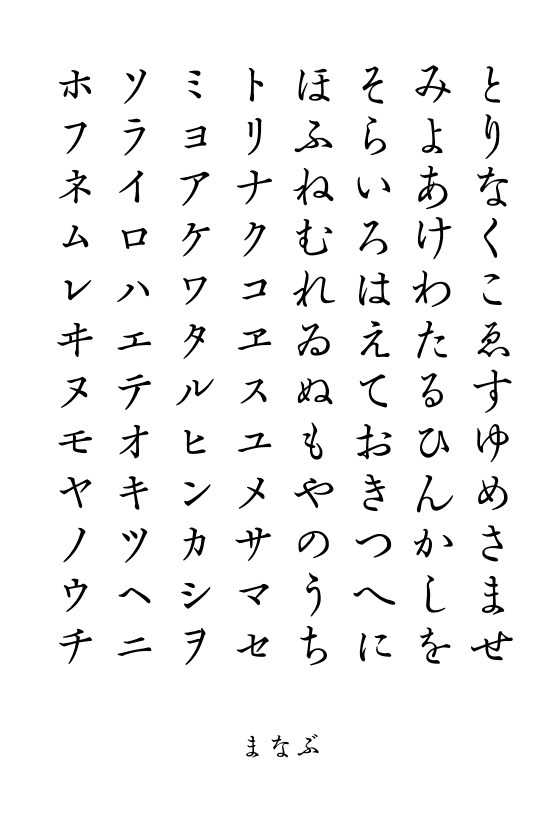 とりなくこゑすゆめさませ
みよあけわたるひんかしを
そらいろはえておきつへに
ほふねむれゐぬもやのうち
トリナクコヱスユメサマセ
ミヨアケワタルヒンカシヲ
ソライロハエテオキツヘニ
ホフネムレヰヌモヤノウチ
まなぶ